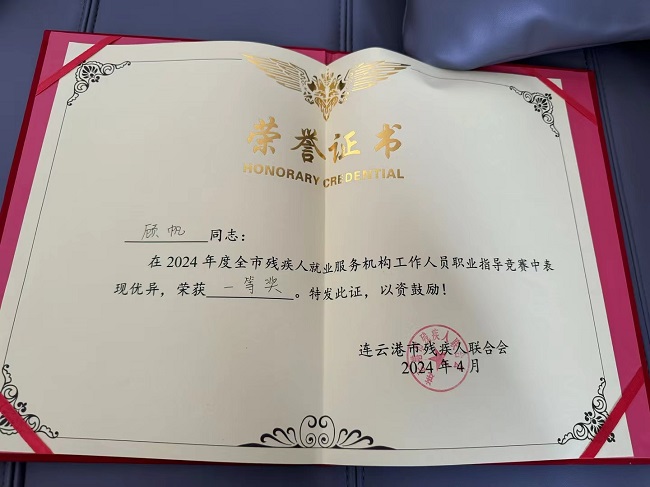 荣誉证书
HONORARY CREDENTIAL
顾帆同志：
在2024年度全市残疾人就业服务机构工作人员职业指导竞赛中表
现优异，荣获一等奖。特发此证，以资鼓励！
连云港市残疾人联合会
2024年4月